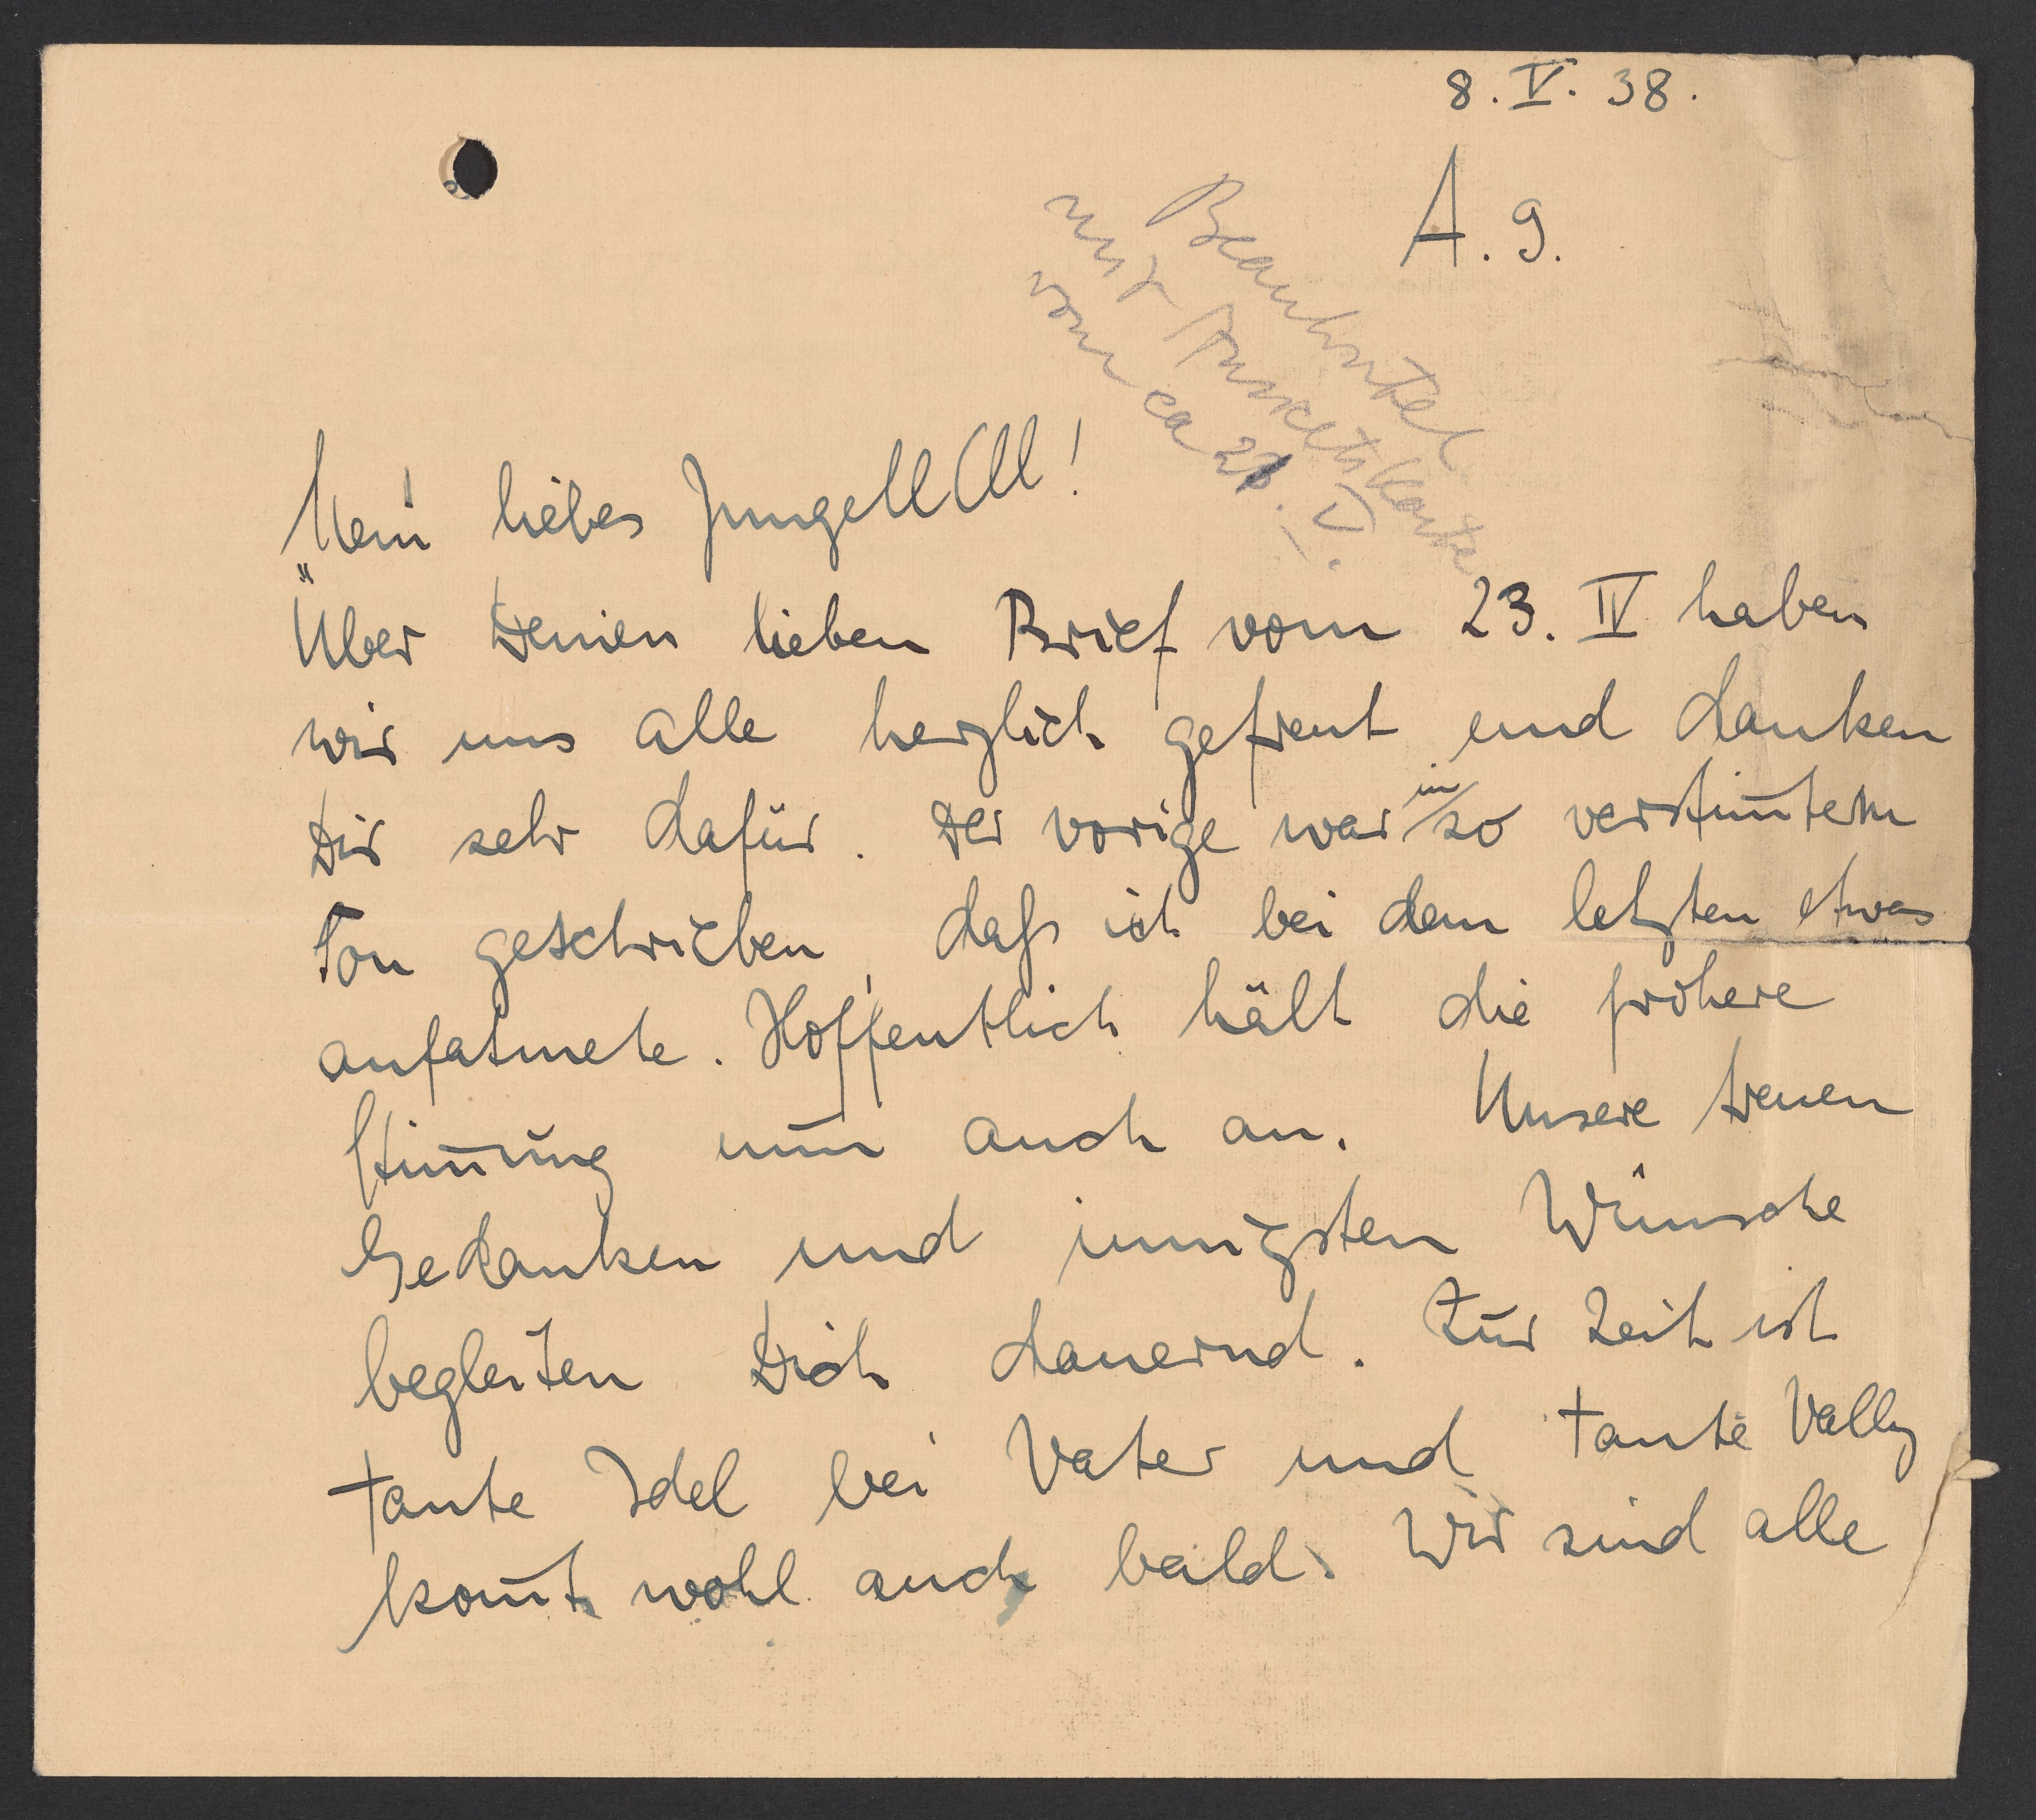 8. V. 38.
A. 9.
Beantwortet
mit Ansichtskarte
vom ca 27. V.
Mein liebes Jungelll!
Über Deinen lieben Brief vom 23. IV haben
wir uns alle herzlich gefreut und danken
Dir sehr dafür. Der vorige war in so verstim̅tem
Ton geschrieben, daß ich bei dem letzten etwas
aufatmete. Hoffentlich hält die frohere
Stim̅ung nun auch an. Unsere treuen
Gedanken und innigsten Wünsche
begleiten Dich dauernd. Zur Zeit ist
Tante Idel bei Vater und Tante Vally
kom̅t wohl auch bald. Wir sind alle